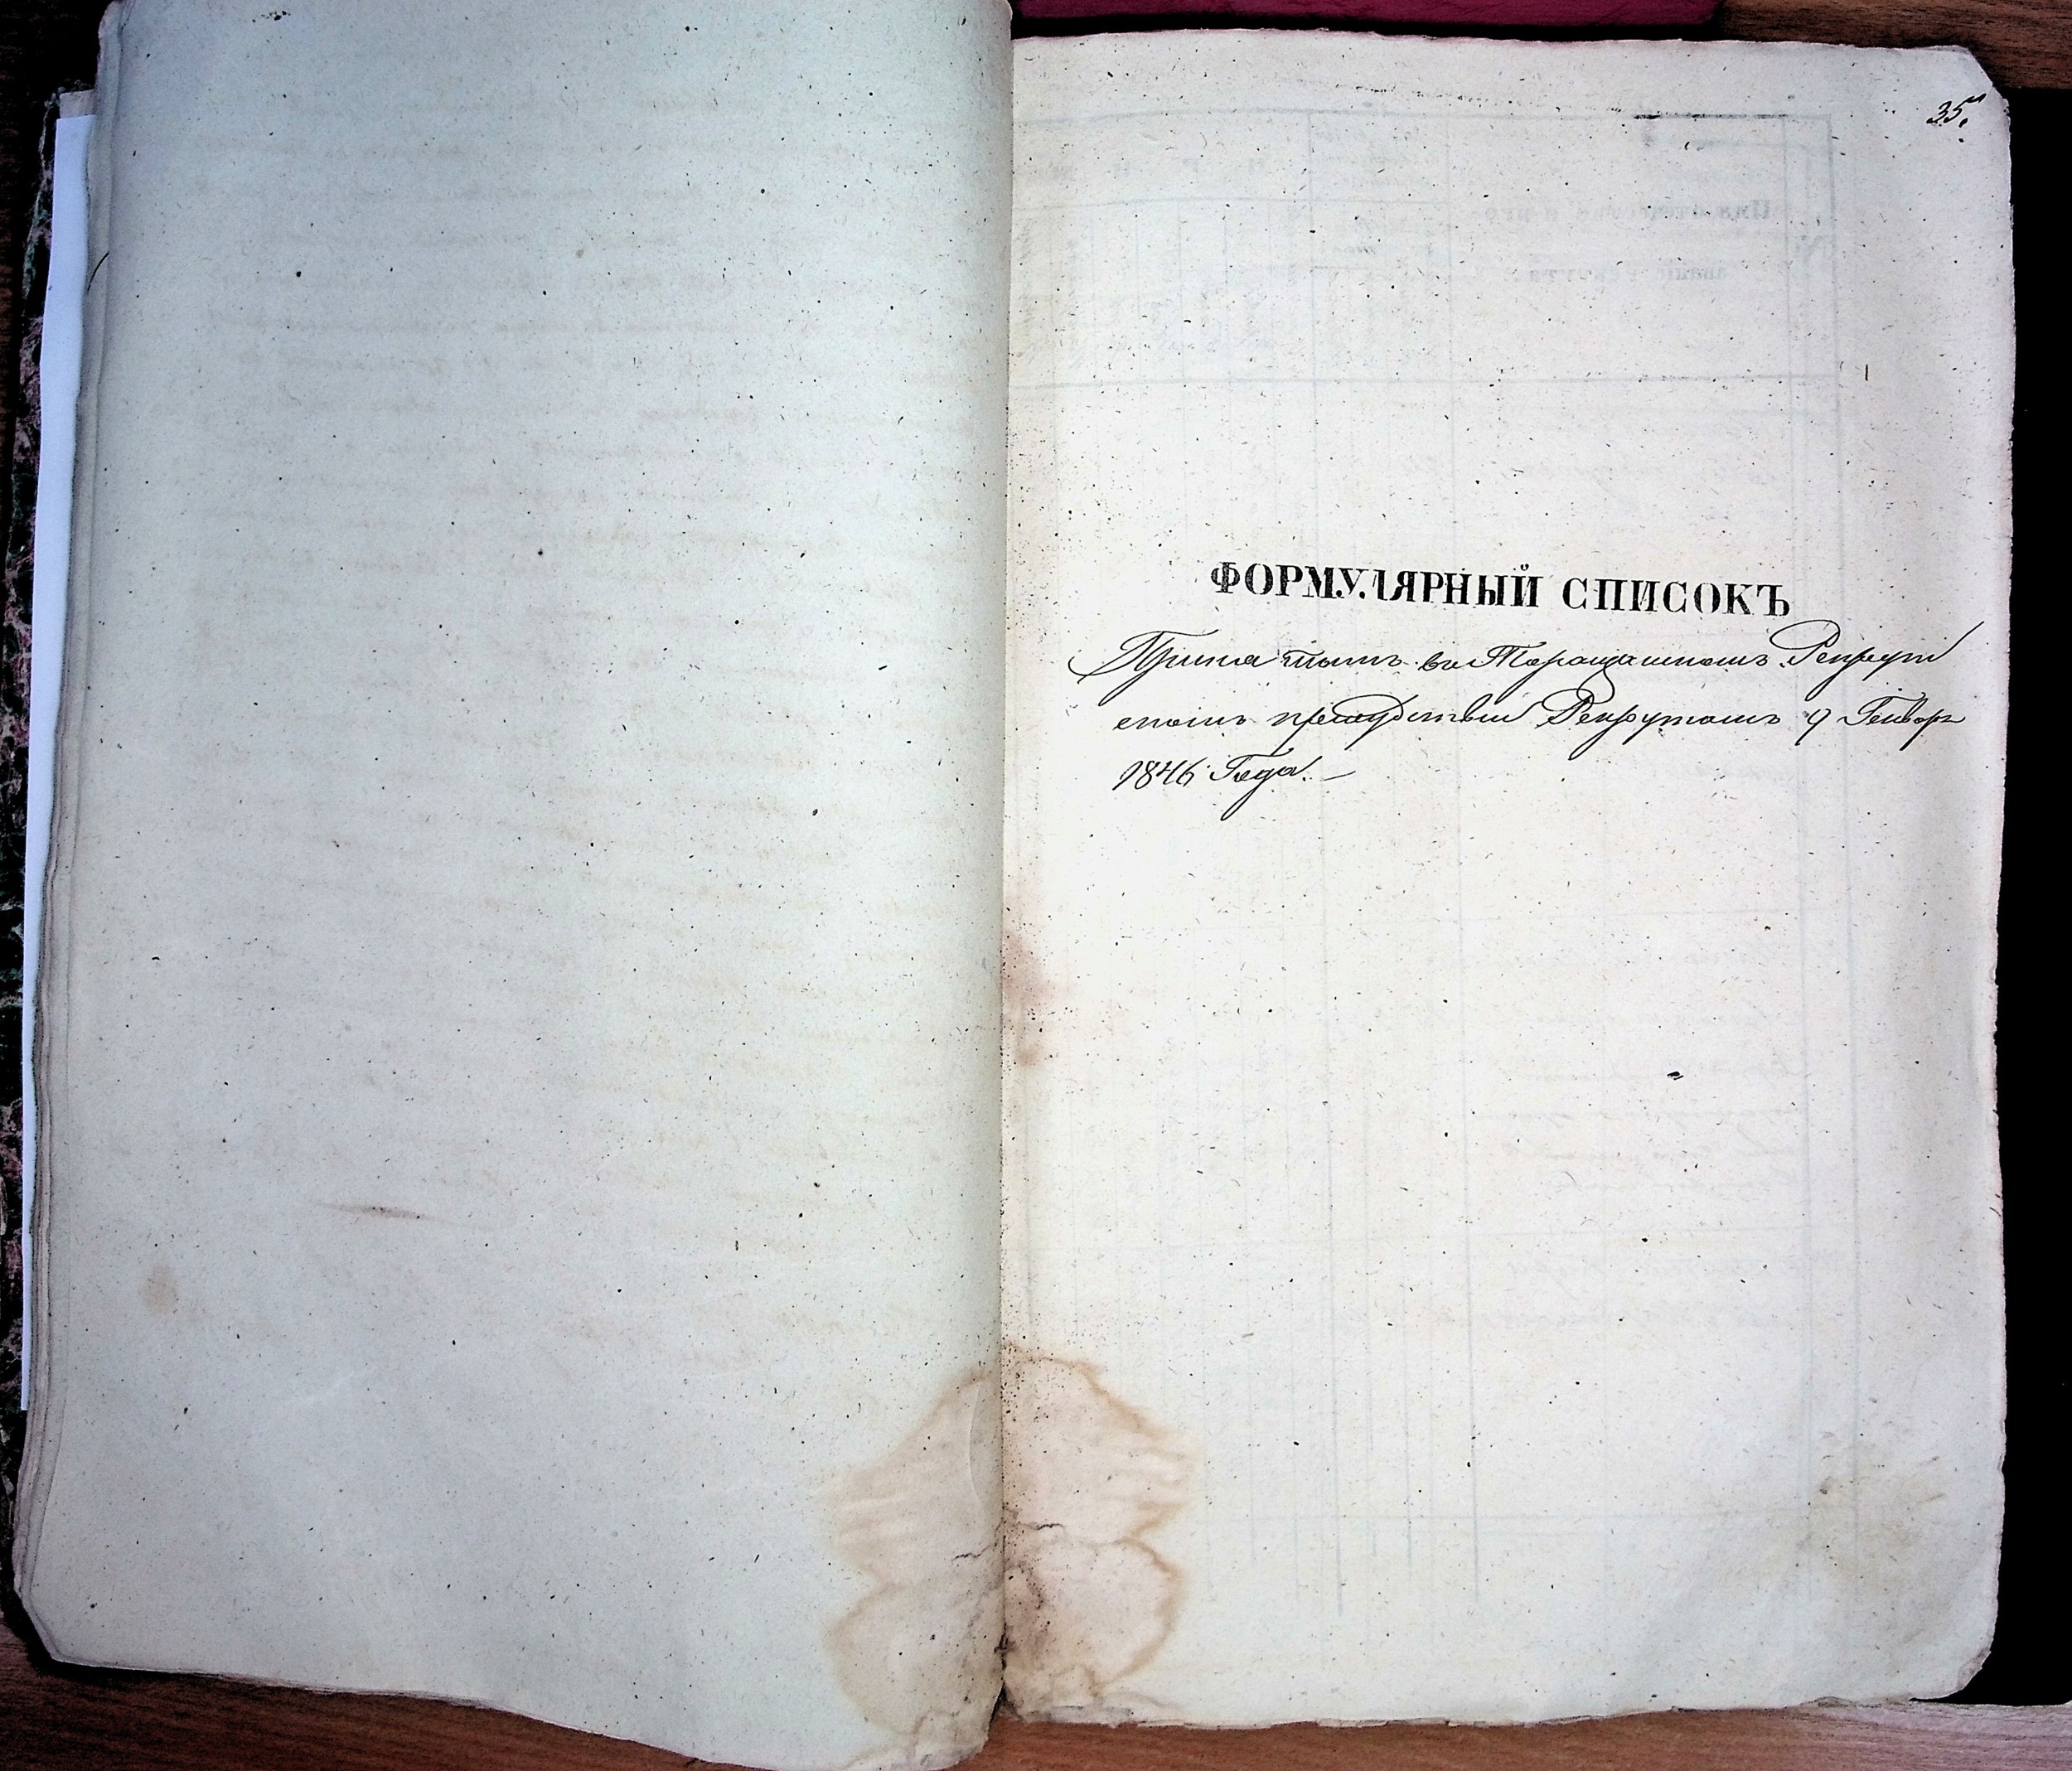 35.
ФОРМУЛЯРНЫЙ СПИСОКЪ
Принятымъ въ Таращанскомъ Рекрут
скомъ присудствии Рекрутамъ 9 Генворя
1846 Года. —